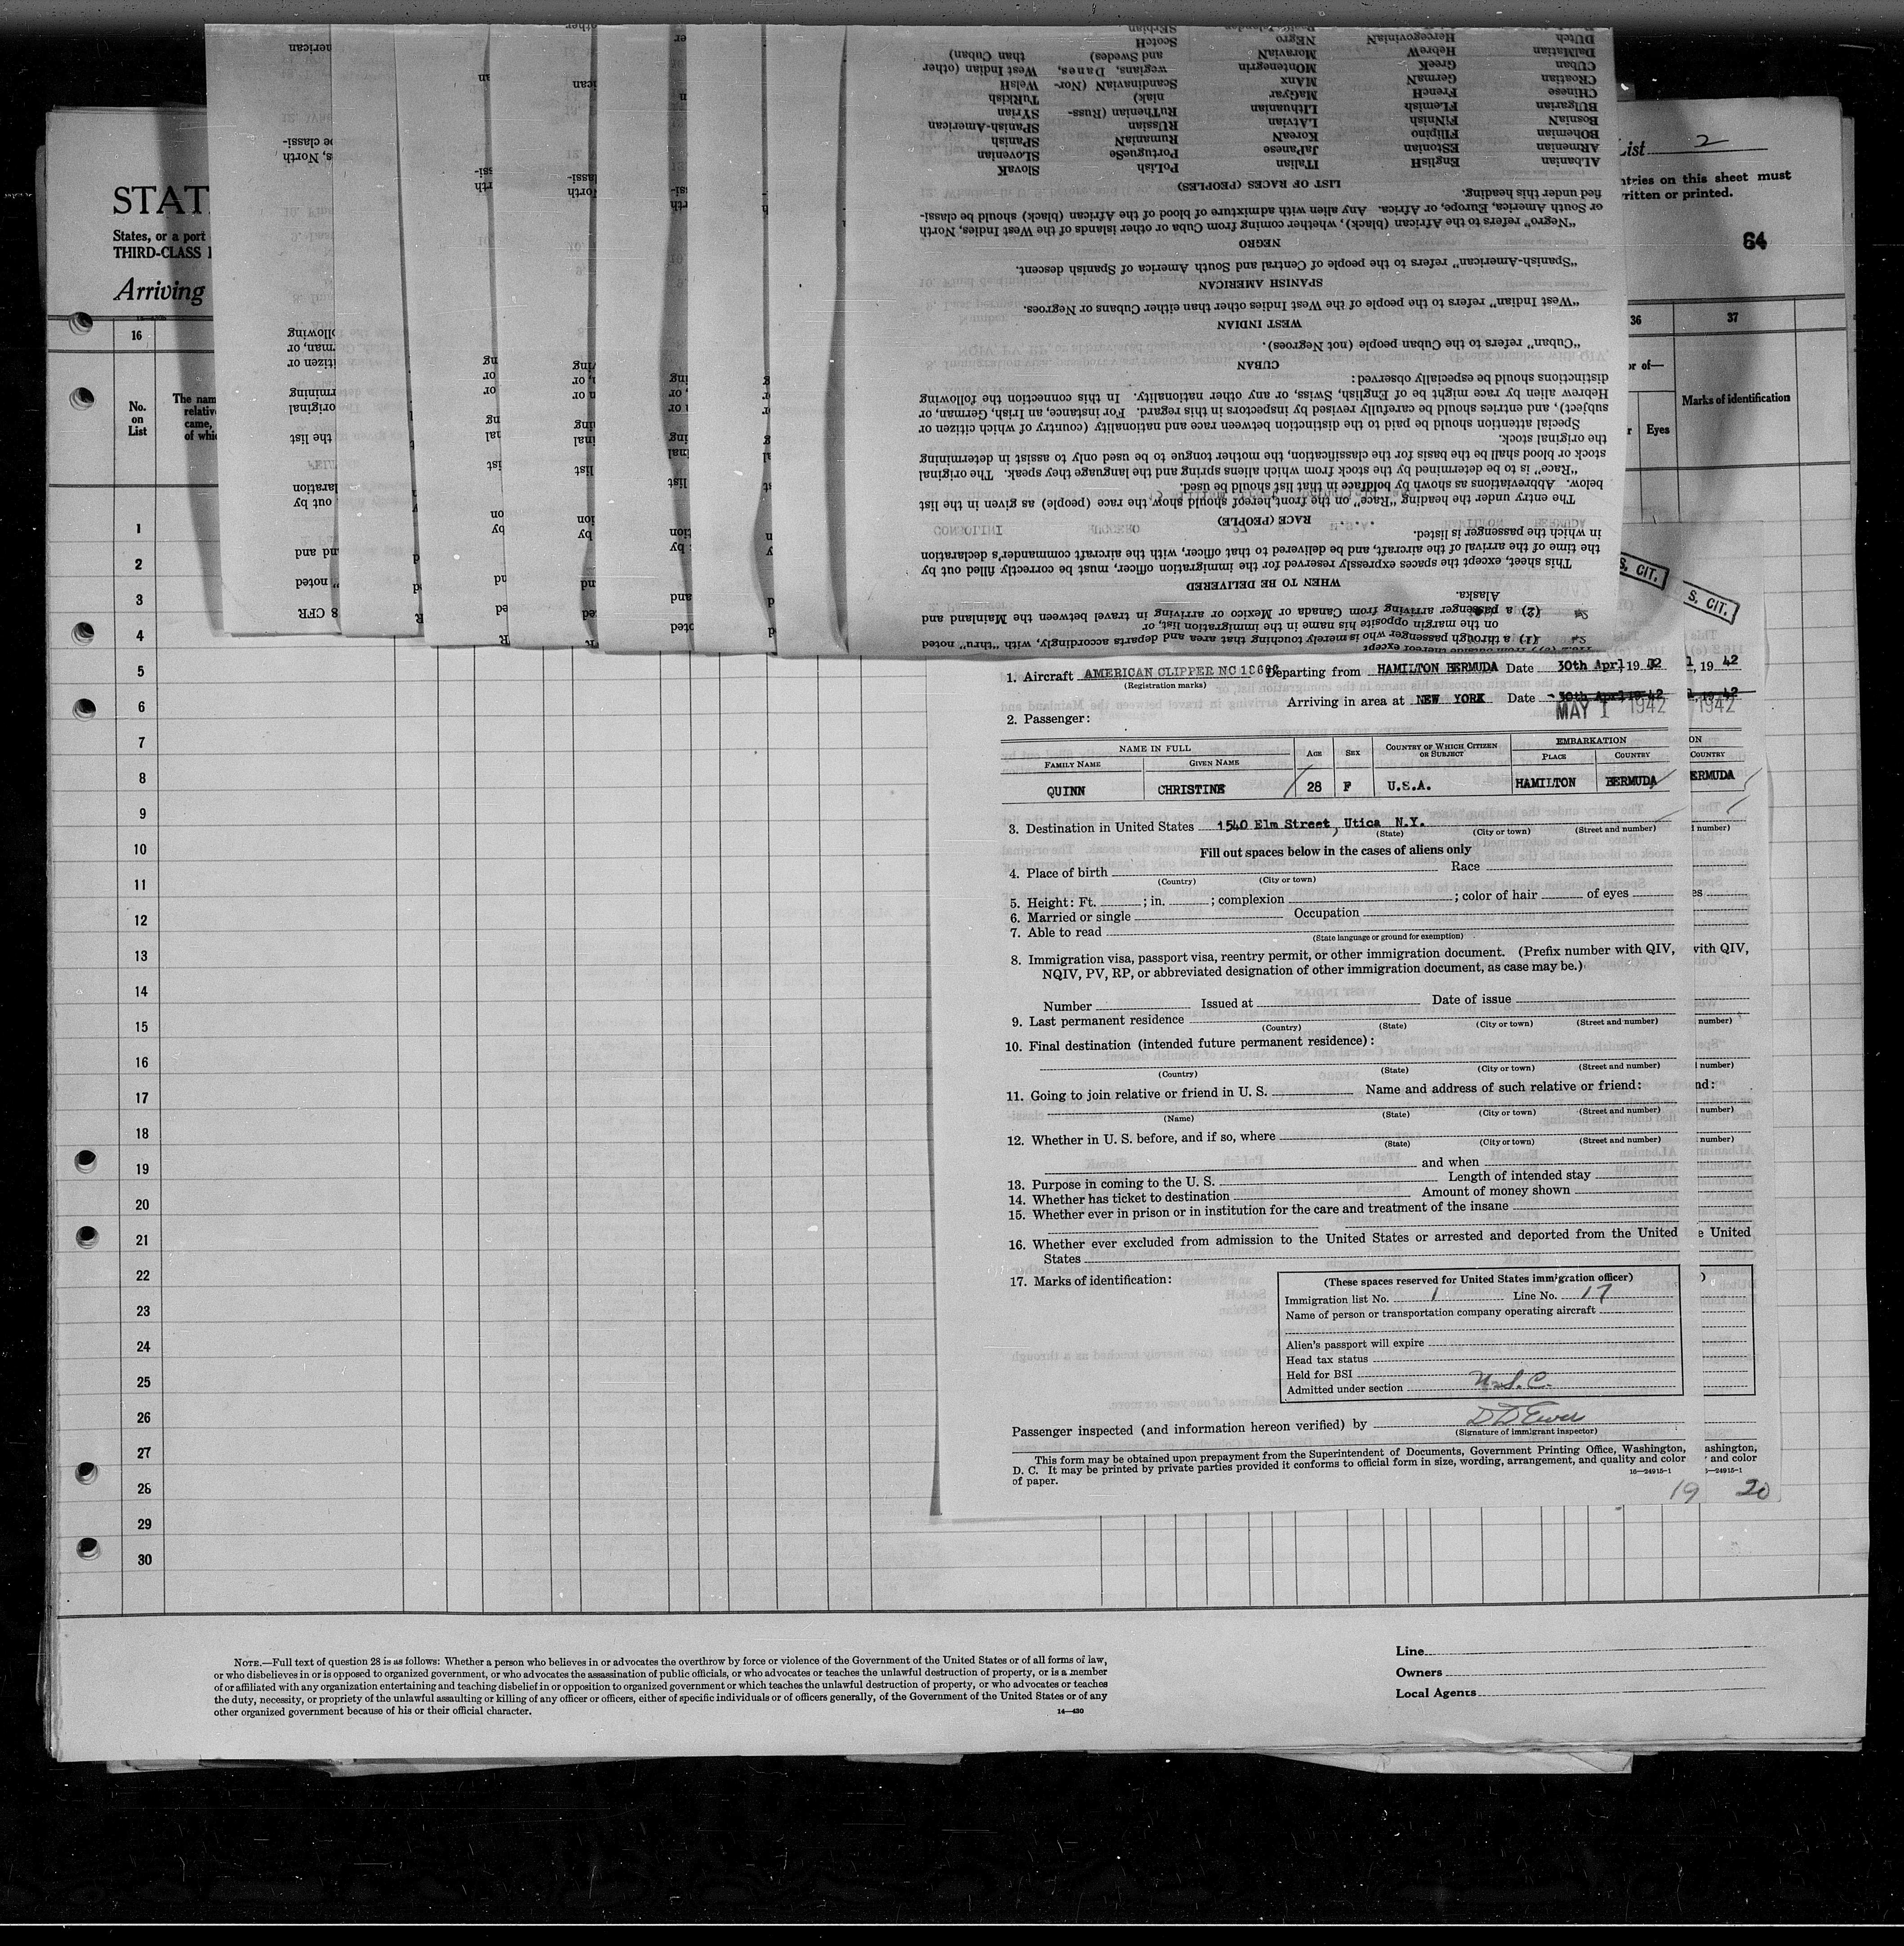 STAT
States, or a port
THIRD-CLASS
Arriving
List 2
ntries on this sheet must
written or printed.
64
16
36
37
No.
on
List
The nam
relativ
came,
of whi
or of—
Eyes
Marks of identification
S. CIT.
S. CIT.
(1) a through passenger who is merely touching that area and departs accordingly, with "thru" noted
on the margin opposite his name in the immigration list, or
(2) a passenger arriving from Canada or Mexico or arriving in travel between the Mainland and
Alaska.
WHEN TO BE DELIVERED
This sheet, except the spaces expressly reserved for the immigration officer, must be correctly filled out by
the time of the arrival of the aircraft, and be delivered to that officer, with the aircraft commander's declaration
in which the passenger is listed.
RACE (PEOPLE)
The entry under the heading "Race" on the front hereof should show the race (people) as given in the list
below. Abbreviations as shown by boldface in that list should be used.
"Race" is to be determined by the stock from which aliens spring and the language they speak. The original
stock or blood shall be the basis for the classification, the mother tongue to be used only to assist in determining
the original stock.
Special attention should be paid to the distinction between race and nationality (country of which citizen or
subject), and entries should be carefully revised by inspectors in this regard. For instance, an Irish, German, or
Hebrew alien by race might be of English, Swiss, or any other nationality. In this connection the following
distinctions should be especially observed:
CUBAN
"Cuban" refers to the Cuban people (not Negroes).
WEST INDIAN
"West Indian" refers to the people of the West Indies other than either Cubans or Negroes.
SPANISH AMERICAN
"Spanish-American" refers to the people of Central and South America of Spanish descent.
NEGRO
"Negro" refers to the African (black), whether coming from Cuba or other islands of the West Indies, North
or South America, Europe, or Africa. Any alien with admixture of blood of the African (black) should be classi-
fied under this heading.
LIST OF RACES (PEOPLES)
ALbanian ENglisH ITalian PoLisH SlovaK
ARmenian EStonian JaPanese PortugueSe SLovenian
BOhemian FIlipino KoreaN RumaniaN SPanisH
BosniaN FiNnisH LAtvian RUssian SPanish-American
BULgarian FLemish LIthuanian RuThenian (Russ- SYrian
CHinese FrencH MaGyar niak) TuRKish
CRoatian GermaN MAnx ScandinaviaN (Nor- WelsH
CUban GreeK MOntenegrin wegians, Danes, West Indian (other
DalMatian HebreW MoraviaN and Swedes) than Cuban)
DUtch HercegoviniaN NEgro ScotcH
SErbian
1. Aircraft AMERICAN CLIPPER NO Departing from HAMILTON BERMUDA Date 30th Aprl 19 42
(Registration marks)
Arriving in area at NEW YORK Date 30th Aprl 19 42
MAY 1 1942
2. Passenger:
NAME IN FULL
AGE
SEX
COUNTRY OF WHICH CITIZEN OR SUBJECT
EMBARKATION
FAMILY NAME GIVEN NAME PLACE COUNTRY
QUINN CHRISTINE 28 F U.S.A. HAMILTON BERMUDA
3. Destination in United States 1540 Elm Street, Utica N.Y.
(State) (City or town) (Street and number)
Fill out spaces below in the cases of aliens only
4. Place of birth Race
(Country) (City or town)
5. Height: Ft. ; in. ; complexion ; color of hair of eyes
6. Married or single Occupation
7. Able to read
(State language or ground for exemption)
8. Immigration visa, passport visa, reentry permit, or other immigration document. (Prefix number with QIV,
NQIV, PV, RP, or abbreviated designation of other immigration document, as case may be.)
Number Issued at Date of issue
9. Last permanent residence
(Country) (State) (City or town) (Street and number)
10. Final destination (intended future permanent residence):
(Country) (State) (City or town) (Street and number)
11. Going to join relative or friend in U. S. Name and address of such relative or friend:
(Name) (State) (City or town) (Street and number)
12. Whether in U. S. before, and if so, where
(State) (City or town) (Street and number)
and when
13. Purpose in coming to the U. S. Length of intended stay
14. Whether has ticket to destination Amount of money shown
15. Whether ever in prison or in institution for the care and treatment of the insane
16. Whether ever excluded from admission to the United States or arrested and deported from the United
States
17. Marks of identification:
(These spaces reserved for United States immigration officer)
Immigration list No. 1 Line No. 17
Name of person or transportation company operating aircraft
Alien's passport will expire
Head tax status
Held for BSI
Admitted under section U.S.C.
Passenger inspected (and information hereon verified) by
(Signature of immigrant inspector)
This form may be obtained upon prepayment from the Superintendent of Documents, Government Printing Office, Washington,
D. C. It may be printed by private parties provided it conforms to official form in size, wording, arrangement, and quality and color
of paper.
16—24915-1
19
20
1
2
3
4
5
6
7
8
9
10
11
12
13
14
15
16
17
18
19
20
21
22
23
24
25
26
27
28
29
30
NOTE.—Full text of question 28 is as follows: Whether a person who believes in or advocates the overthrow by force or violence of the Government of the United States or of all forms of law,
or who disbelieves in or is opposed to organized government, or who advocates the assassination of public officials, or who advocates or teaches the unlawful destruction of property, or is a member
of or affiliated with any organization entertaining and teaching disbelief in or opposition to organized government or which teaches the unlawful destruction of property, or who advocates or teaches
the duty, necessity, or propriety of the unlawful assaulting or killing of any officer or officers, either of specific individuals or of officers generally, of the Government of the United States or of any
other organized government because of his or their official character.
14—430
Line
Owners
Local Agents